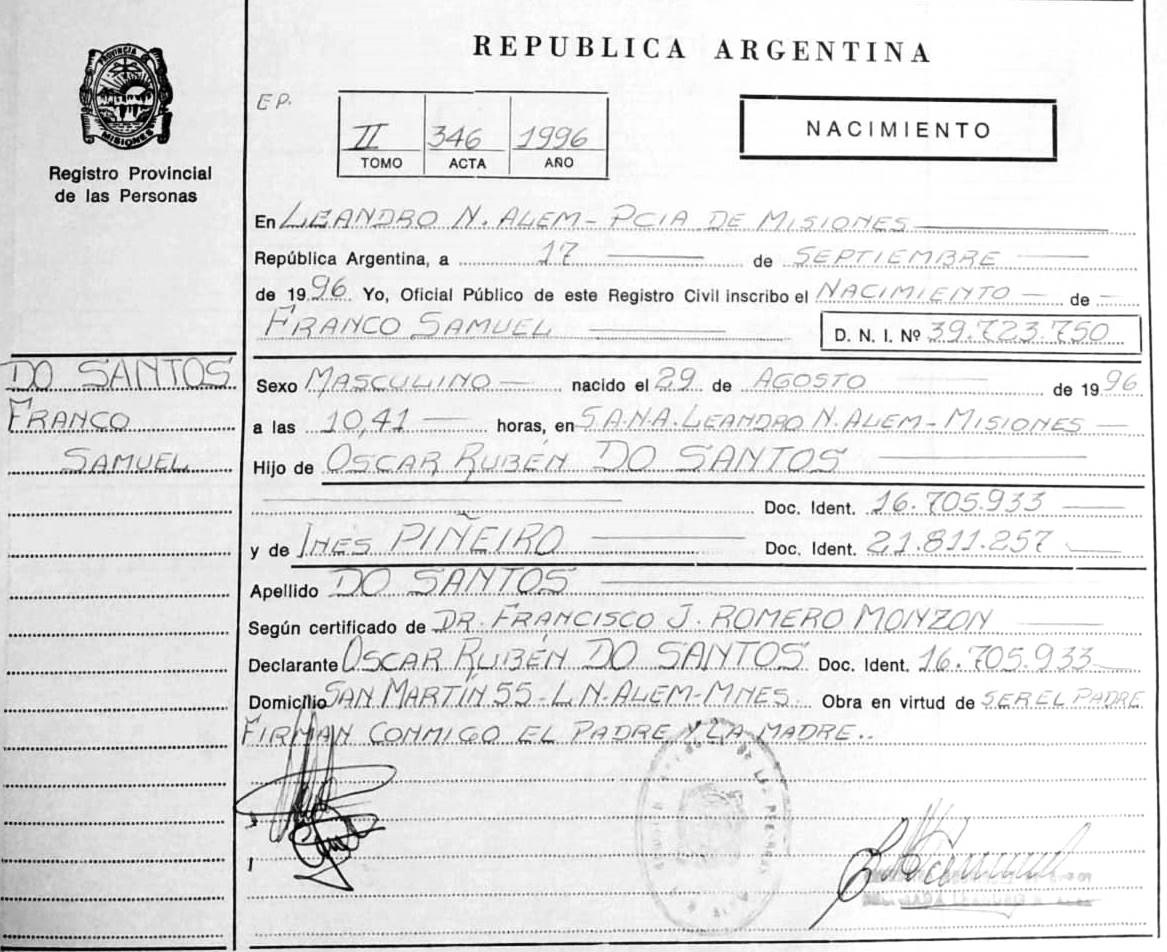 REPUBLICA ARGENTINA
PROVINCIA
MISIONES
Registro Provincial
de las Personas
E P.
II 346 1996
TOMO ACTA AÑO
NACIMIENTO
En LEANDRO N. ALEM - PCIA DE MISIONES
República Argentina, a 17 de SEPTIEMBRE
de 1996 Yo, Oficial Público de este Registro Civil inscribo el NACIMIENTO de
FRANCO SAMUEL D. N. I. Nº 39.723.750
DO SANTOS
FRANCO
SAMUEL
Sexo MASCULINO nacido el 29 de AGOSTO de 1996
a las 10,41 horas, en S.A.N.A. LEANDRO N. ALEM - MISIONES
Hijo de OSCAR RUBÉN DO SANTOS
Doc. Ident. 16.705.933
y de INES PIÑEIRO Doc. Ident. 21.811.257
Apellido DO SANTOS
Según certificado de DR. FRANCISCO J. ROMERO MONZON
Declarante OSCAR RUBÉN DO SANTOS Doc. Ident. 16.705.933
Domicilio SAN MARTÍN 55 - L.N. ALEM - MNES. Obra en virtud de SER EL PADRE
FIRMAN CONMIGO EL PADRE Y LA MADRE..